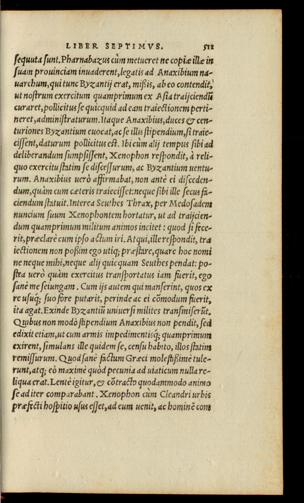 LIBER SEPTIMVS. 512
sequuta sunt. Pharnabazus cùm metueret ne copiæ illæ in
suam prouinciam inuaderent, legatis ad Anaxibium na-
uarchum, qui tunc Byzantij erat, mißis, ab eo contendit,
ut nostrum exercitum quamprimum ex Asia traijciendũ
curaret, pollicitus se quicquid ad eam traiectionem perti-
neret, administraturum. Itaque Anaxibius, duces & cen-
turiones Byzantium euocat, ac se illis stipendium, si traie-
cissent, daturum pollicitus est. Ibi cùm alij tempus sibi ad
deliberandum sumpsissent, Xenophon respondit, à reli-
quo exercitu statim se discessurum, ac Byzantium uentu
rum. Anaxibius uerò affirmabat, non antè ei disceden-
dum, quàm cum cæteris traiecisset: neque sibi ille secus fa-
ciendum statuit. Interea Seuthes Thrax, per Medosadem
nuncium suum Xenophontem hortatur, ut ad traijcien-
dum quamprimum militum animos incitet: quod si fece-
rit, præclarè cum ipso actum iri. Atqui, ille respondit, tra
iectionem non poßim ego utiq; præstare, quare hoc nomi
ne neque mihi, neque alij quicquam Seuthes pendat: po-
stea uerò quàm exercitus transportatus iam fuerit, ego
sanè me seiungam. Cum ijs autem qui manserint, quos ex
re usuq; suo fore putarit, perinde ac ei cõmodum fuerit,
ita agat. Exinde Byzantiũ uniuersi milites transmiserũt.
Quibus non modò stipendium Anaxibius non pendit, sed
edixit etiam, ut cum armis impedimentisq; quamprimum
exirent, simulans ille quidem se, censu habito, illos statim
remissurum. Quod sanè factum Græci molestißimè tule-
runt, atq; eò maximè quòd pecunia ad uiaticum nulla re-
liqua erat. Lentè igitur, & cõtracto quodammodo animo
se ad iter comparabant. Xenophon cùm Cleandri urbis
præfecti hospitio usus esset, ad eum uenit, ac hominẽ com